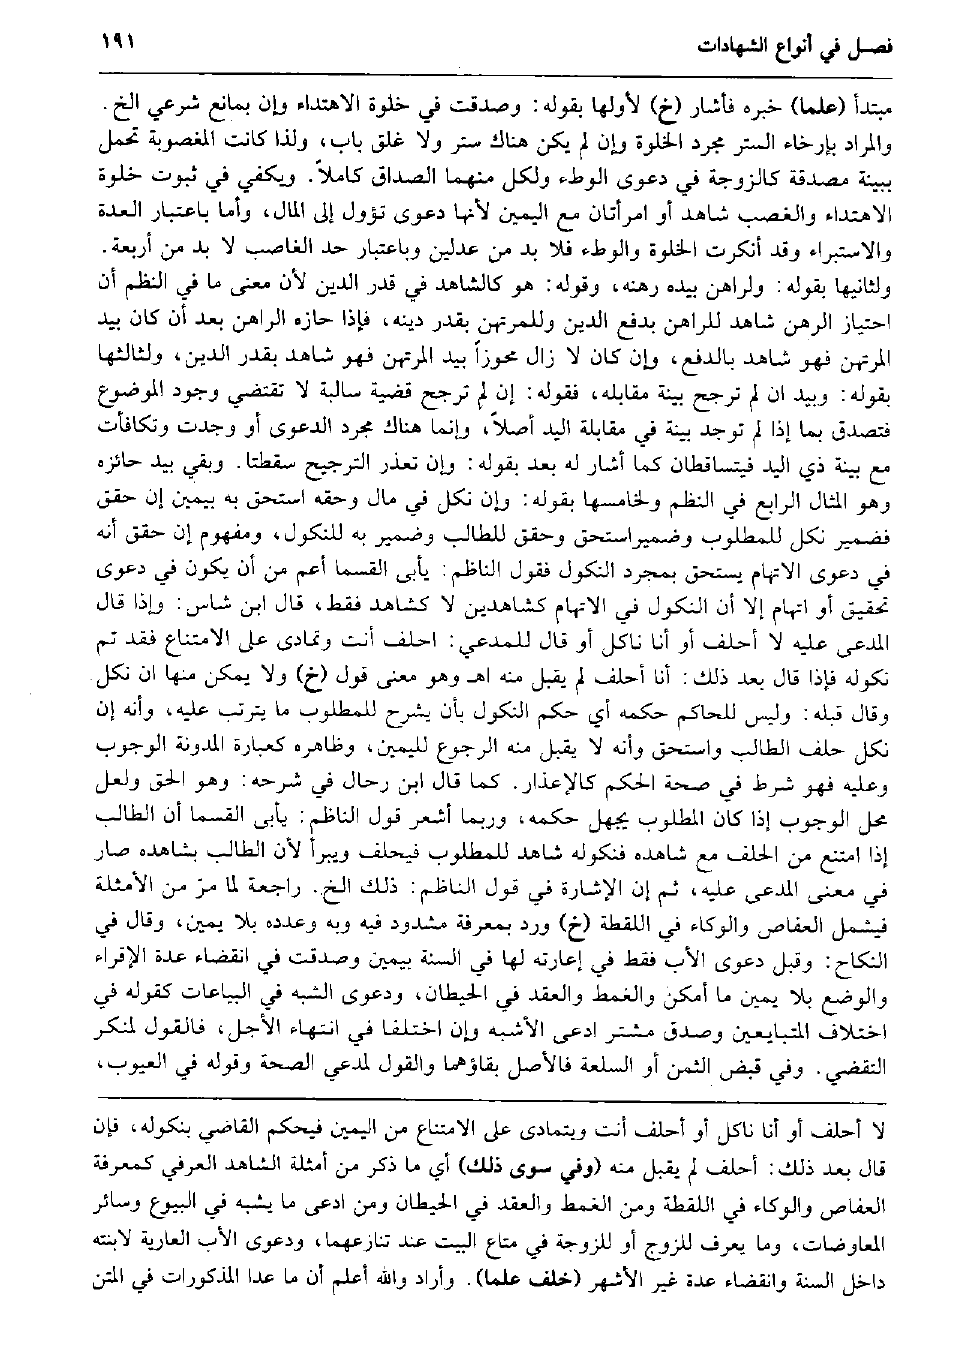 فصل في أنواع الشهادات ١٩١
مبتدأ (علما) خبره فأشار (خ) لأولها بقوله: وصدقت في خلوة الاهتداء وإن بمانع شرعي الخ.
والمراد بإرخاء الستر مجرد الخلوة وإن لم يكن هناك ستر ولا غلق باب، ولذا كانت المغصوبة تحمل
ببينة مصدقة كالزوجة في دعوى الوطء ولكل منهما الصداق كاملاً. ويكفي في ثبوت خلوة
الاهتداء والغصب شاهد أو امرأتان مع اليمين لأنها دعوى تؤول إلى المال، وأما باعتبار العدة
والاستبراء وقد أنكرت الخلوة والوطء فلا بد من عدلين وباعتبار حد الغاصب لا بد من أربعة.
ولثانيها بقوله: ولراهن بيده رهنه، وقوله: هو كالشاهد في قدر الدين لأن معنى ما في النظم أن
احتياز الرهن شاهد للراهن بدفع الدين وللمرتهن بقدر دينه، فإذا حازه الراهن بعد أن كان بيد
المرتهن فهو شاهد بالدفع، وإن كان لا زال محوزاً بيد المرتهن فهو شاهد بقدر الدين، ولثالثها
بقوله: وبيد ان لم ترجح بينة مقابله، فقوله: إن لم ترجح قضية سالبة لا تقتضي وجود الموضوع
فتصدق بما إذا لم توجد بينة في مقابلة اليد أصلاً، وإنما هناك مجرد الدعوى أو وجدت وتكافأت
مع بينة ذي اليد فيتساقطان كما أشار له بعد بقوله: وإن تعذر الترجيح سقطتا. وبقي بيد حائزه
وهو المثال الرابع في النظم ولخامسها بقوله: وإن نكل في مال وحقه استحق به بيمين إن حقق
فضمير نكل للمطلوب وضميراستحق وحقق للطالب وضمير به للنكول، ومفهوم إن حقق أنه
في دعوى الاتهام يستحق بمجرد النكول فقول الناظم: يأبى القسما أعم من أن يكون في دعوى
تحقيق أو اتهام إلا أن النكول في الاتهام كشاهدين لا كشاهد فقط، قال ابن شاس: وإذا قال
المدعى عليه لا أحلف أو أنا ناكل أو قال للمدعي: احلف أنت وتمادى على الامتناع فقد تم
نكوله فإذا قال بعد ذلك: أنا أحلف لم يقبل منه اهـ وهو معنى قول (خ) ولا يمكن منها ان نكل
وقال قبله: وليس للحاكم حكمه أي حكم النكول بأن يشرح للمطلوب ما يترتب عليه، وأنه إن
نكل حلف الطالب واستحق وأنه لا يقبل منه الرجوع لليمين، وظاهره كعبارة المدونة الوجوب
وعليه فهو شرط في صحة الحكم كالإعذار. كما قال ابن رحال في شرحه: وهو الحق ولعل
محل الوجوب إذا كان المطلوب يجهل حكمه، وربما أشعر قول الناظم: يأبى القسما أن الطالب
إذا امتنع من الحلف مع شاهده فنكوله شاهد للمطلوب فيحلف ويبرأ لأن الطالب بشاهده صار
في معنى المدعى عليه، ثم إن الإشارة في قول الناظم: ذلك الخ. راجعة لما مرّ من الأمثلة
فيشمل العفاص والوكاء في اللقطة (خ) ورد بمعرفة مشدود فيه وبه وعدده بلا يمين، وقال في
النكاح: وقبل دعوى الأب فقط في إعارته لها في السنة بيمين وصدقت في انقضاء عدة الإقراء
والوضع بلا يمين ما أمكن والغمط والعقد في الحيطان، ودعوى الشبه في البياعات كقوله في
اختلاف المتبايعين وصدق مشتر ادعى الأشبه وإن اختلفا في انتهاء الأجل، فالقول لمنكر
التقضي. وفي قبض الثمن أو السلعة فالأصل بقاؤهما والقول لمدعي الصحة وقوله في العيوب،
لا أحلف أو أنا ناكل أو أحلف أنت ويتمادى على الامتناع من اليمين فيحكم القاضي بنكوله، فإن
قال بعد ذلك: أحلف لم يقبل منه (وفي سوى ذلك) أي ما ذكر من أمثلة الشاهد العرفي كمعرفة
العفاص والوكاء في اللقطة ومن الغمط والعقد في الحيطان ومن ادعى ما يشبه في البيوع وسائر
المعاوضات، وما يعرف للزوج أو للزوجة في متاع البيت عند تنازعهما، ودعوى الأب العارية لابنته
داخل السنة وانقضاء عدة غير الأشهر (خلف علما). وأراد والله أعلم أن ما عدا المذكورات في المتن